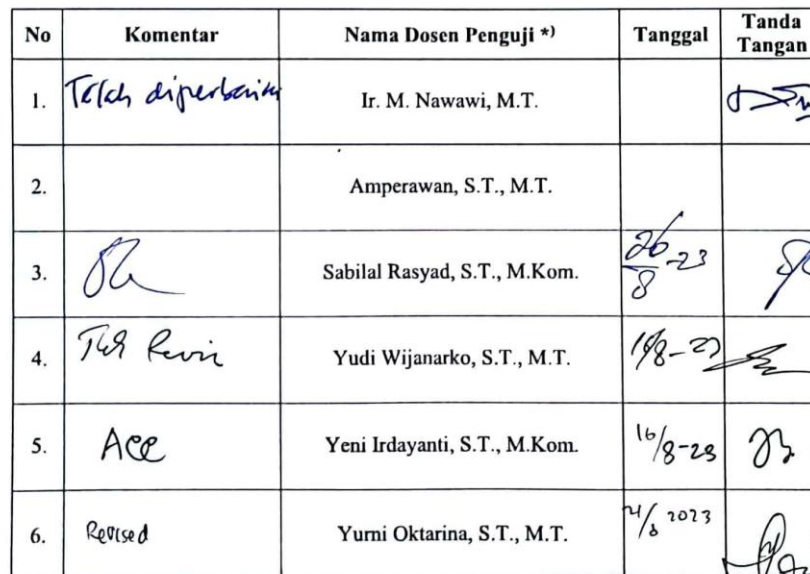 No Komentar Nama Dosen Penguji *) Tanggal Tanda Tangan
1. Telah diperbaiki Ir. M. Nawawi, M.T.
2. Amperawan, S.T., M.T.
3. Sabilal Rasyad, S.T., M.Kom. 26/8-23
4. Yudi Wijanarko, S.T., M.T.
5. Acc Yeni Irdayanti, S.T., M.Kom. 16/8-23
6. Revised Yurni Oktarina, S.T., M.T. 2023